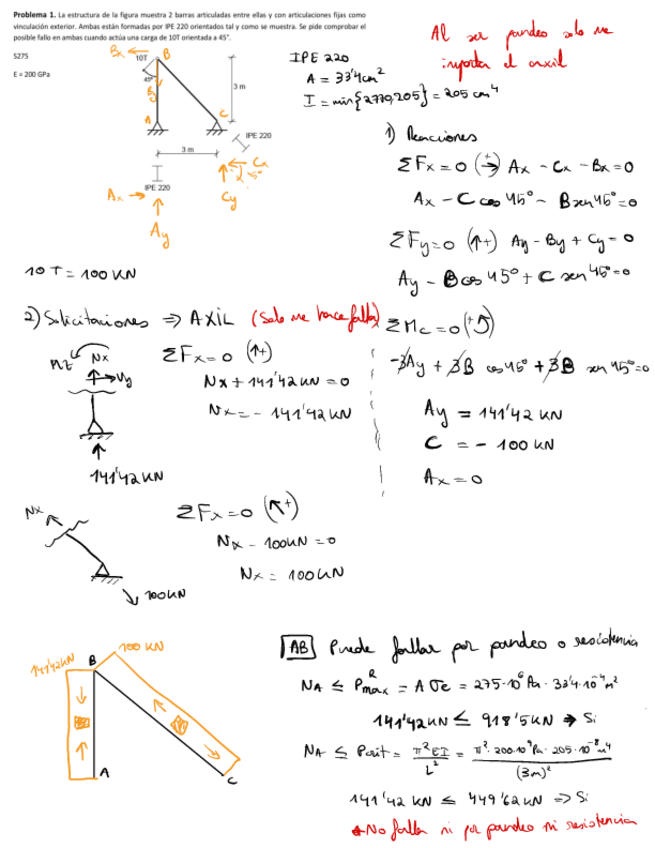 Problema 1. La estructura de la figura muestra 2 barras articuladas entre ellas y con articulaciones fijas como
vinculación exterior. Ambas están formadas por IPE 220 orientados tal y como se muestra. Se pide comprobar el
posible fallo en ambas cuando actúa una carga de 10T orientada a 45°.
S275
E = 200 GPa
Bx
B
10T
45°
By
A
C
3 m
3 m
IPE 220
IPE 220
Ax
Ay
Cx
Cy
45°
IPE 220
A = 33'4cm²
I = min{2770,205} = 205 cm⁴
Al ser pandeo solo me
importa el axil
1) Reacciones
ΣFx=0 (→+) Ax - Cx - Bx=0
Ax - C cos 45° - B sen 45°=0
ΣFy=0 (↑+) Ay - By + Cy = 0
Ay - B cos 45° + C sen 45°=0
10 T = 100 KN
2) Solicitaciones ⇒ AXIL (Solo me hace falta)
ΣMc=0
-3Ay + 3B cos 45° + 3B sen 45°=0
Ay = 141'42 KN
C = - 100 KN
Ax = 0
Mz
Nx
Vy
141'42 KN
ΣFx=0 (↑+)
Nx + 141'42 KN = 0
Nx = - 141'42 KN
Nx
100KN
ΣFx=0 (↖+)
Nx - 100KN = 0
Nx = 100KN
141'42KN
B
100 KN
A
C
AB Puede fallar por pandeo o resistencia
NA ≤ P^R max = A σe = 275·10⁶ Pa · 33'4·10⁻⁴ m²
141'42 KN ≤ 918'5 KN ⇒ Si
NA ≤ Pcrit = π²EI/L² = π²·200·10⁹ Pa · 205·10⁻⁸ m⁴/(3m)²
141'42 KN ≤ 449'62 KN ⇒ Si
No falla ni por pandeo ni resistencia